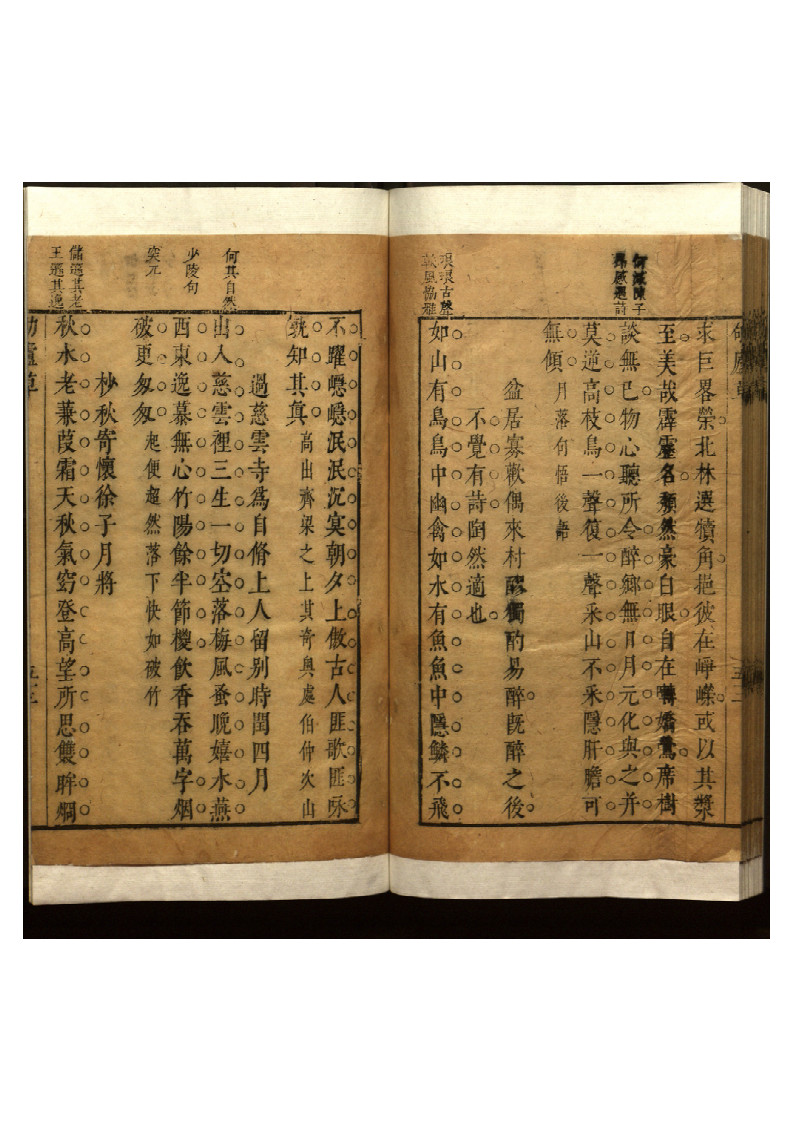 求巨畧榮北林選犢角挹彼在崢嶸或以其槳
至美哉霹靂名頽然豪白眼自在囀嬌鶯席樹
談無已物心聽所令醉鄉無日月元化與之并
莫逆高枝鳥一聲復一聲采山不采隱肝膽可
無傾 月落何悟後語
盆居寡歡偶來村醪獨酌易醉旣醉之後
不覺有詩陶然適也
琅琅古聲
敦風協雅
如山有鳥鳥中幽禽如水有魚魚中隱鱗不飛
不躍噁噁泯泯沉寞朝夕上倣古人匪歌匪咏
孰知其眞 高出齊梁之上其奇奥處伯仲次山
過慈雲寺爲自脩上人留別時閏四月
何其自然
出人慈雲裡三生一切空落梅風蚤晚嬉水燕
少陵句
西東逸慕無心竹陽餘半節櫻飲香吞萬字烟
突兀
破更匆匆 起便超然落下快如破竹
杪秋寄懷徐子月將
儲遜其老
王遜其逸
秋水老蒹葭霜天秋氣窮登高望所思雙眸烱